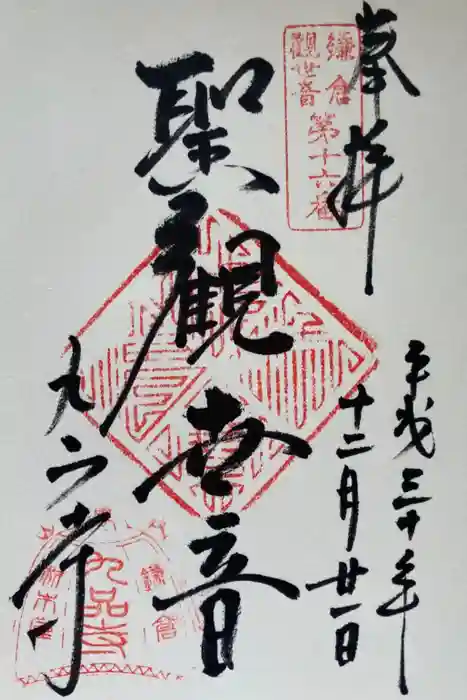 奉拝
平成三十年
十二月廿一日
鎌倉
觀世音
第十六番
聖觀世音
九品寺
鎌倉
九品寺
材木座